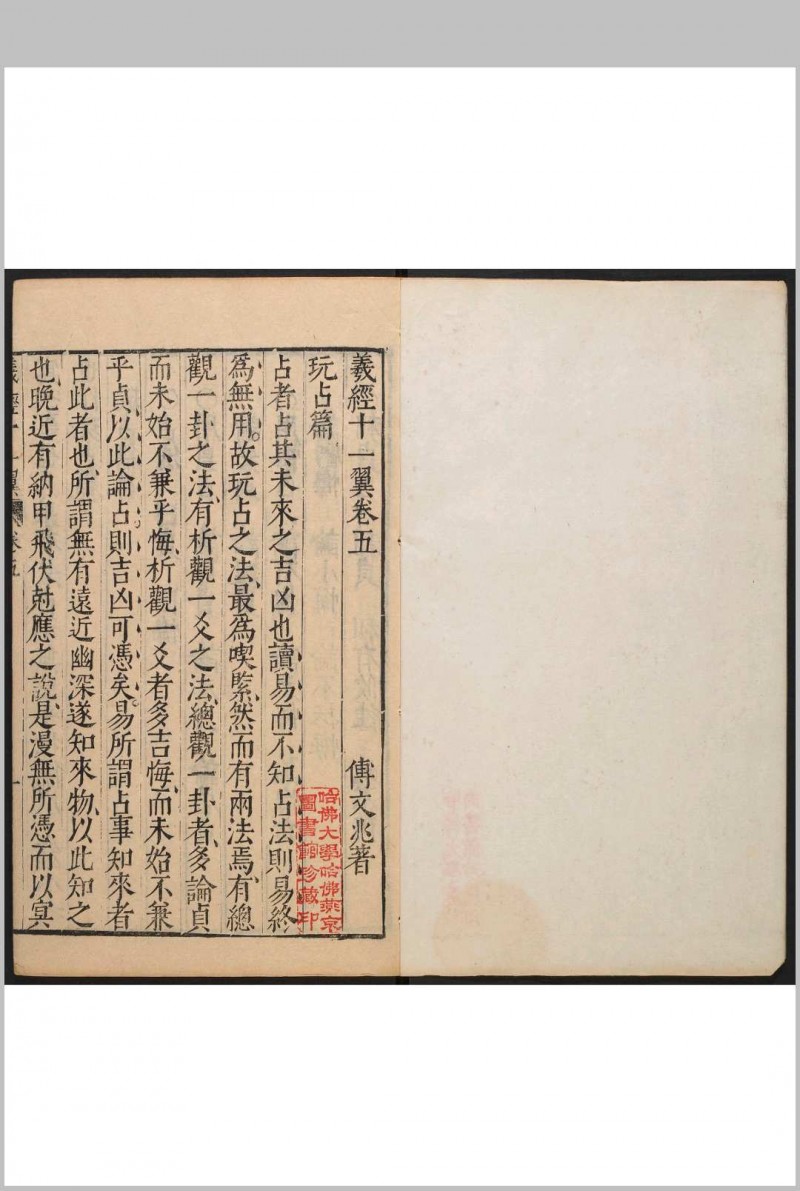 羲經十一翼卷五
傅文兆著
玩占篇
占者占其未來之吉凶也讀易而不知占法則易終
爲無用。故玩占之法、最爲喫緊然而有兩法焉、有總
觀一卦之法、有析觀一爻之法、總觀一卦者、多論貞
而未始不兼乎悔、析觀一爻者多吉悔、而未始不兼
乎貞、以此論占則吉凶可憑矣。易所謂占事知來者
占此者也、所謂無有遠近幽深遂知來物、以此知之
也、晚近有納甲飛伏尅應之說、是漫無所憑而以㝠
羲經十一翼 卷五
一
哈佛大學哈佛燕京
圖書館珍藏印